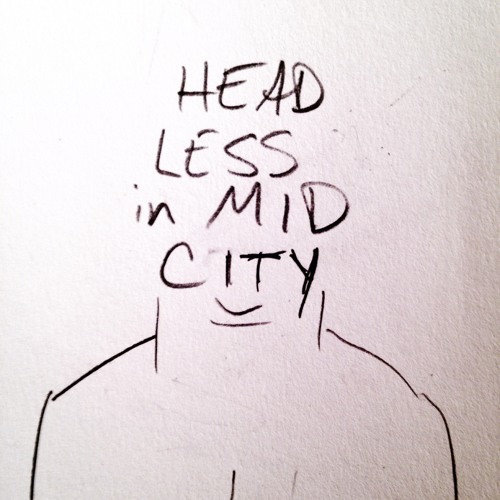 HEAD
LESS
in MID
CITY